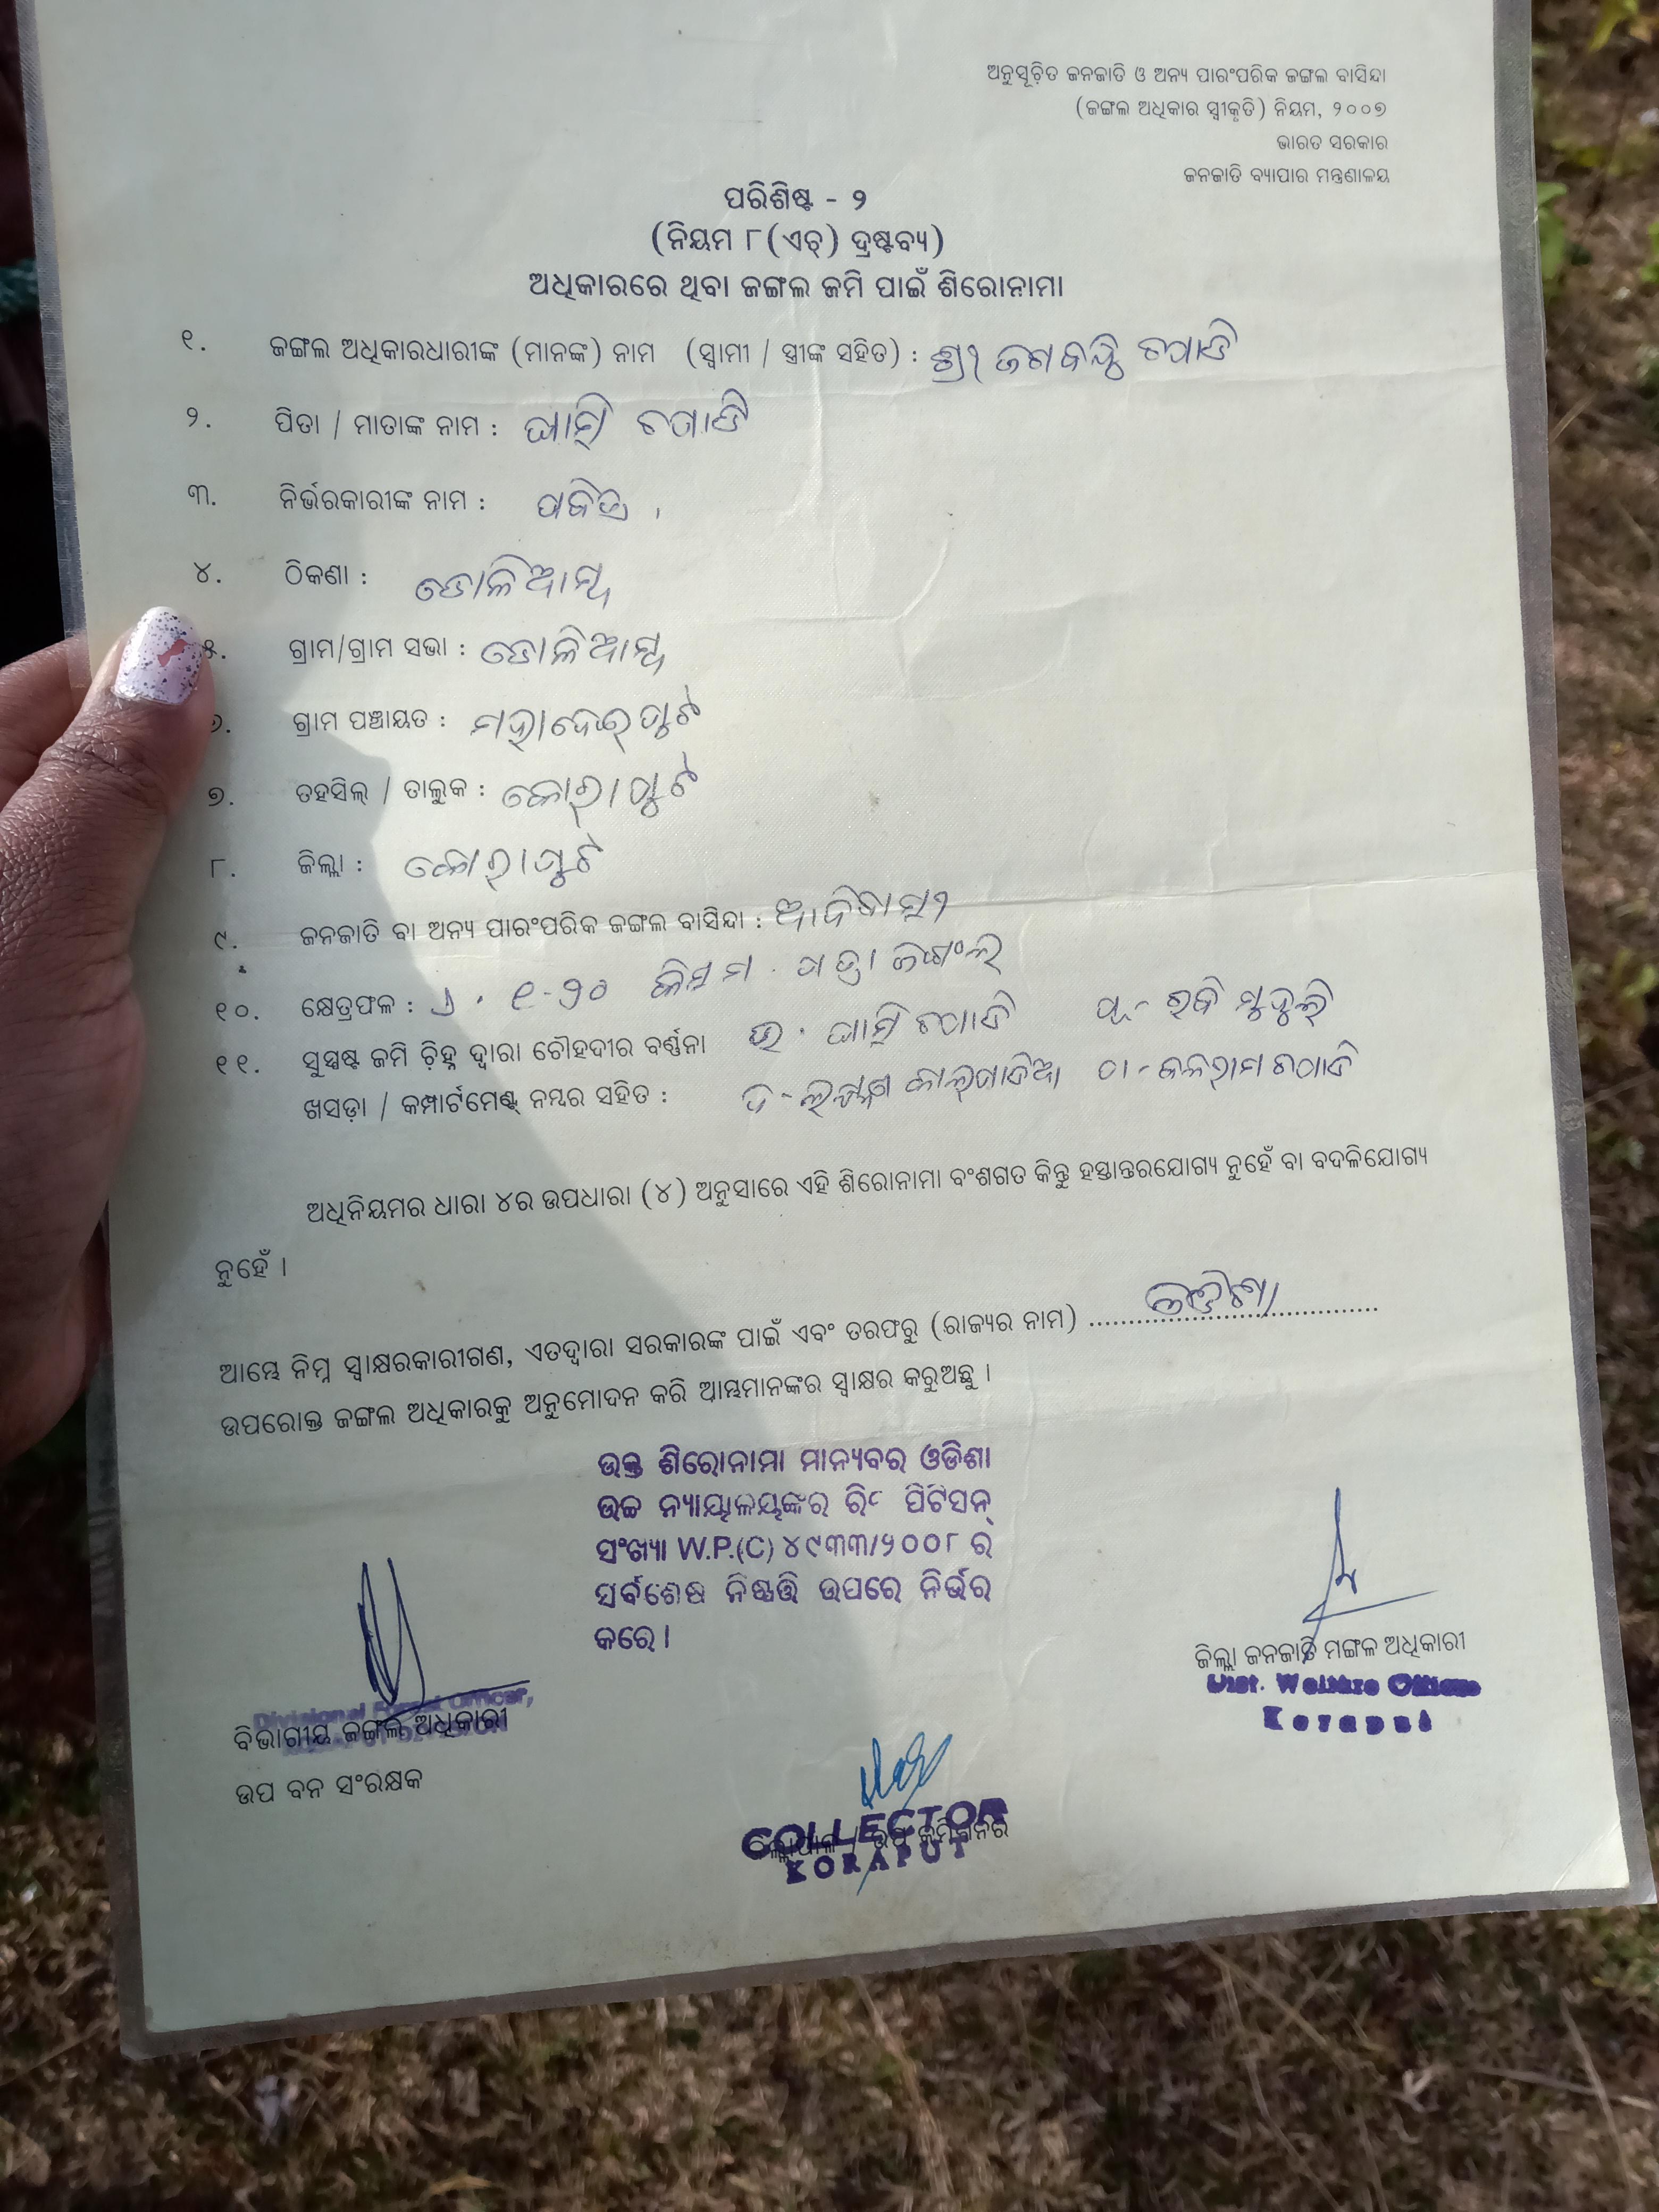 ଅନୁସୂଚିତ ଜନଜାତି ଓ ଅନ୍ୟ ପାରଂପରିକ ଜଙ୍ଗଲ ବାସିନ୍ଦା
(ଜଙ୍ଗଲ ଅଧିକାର ସ୍ୱୀକୃତି) ନିୟମ, ୨୦୦୭
ଭାରତ ସରକାର
ଜନଜାତି ବ୍ୟାପାର ମନ୍ତ୍ରଣାଳୟ
ପରିଶିଷ୍ଟ - ୨
(ନିୟମ ୮(ଏଚ୍) ଦ୍ରଷ୍ଟବ୍ୟ)
ଅଧିକାରରେ ଥିବା ଜଙ୍ଗଲ ଜମି ପାଇଁ ଶିରୋନାମା
୧. ଜଙ୍ଗଲ ଅଧିକାରଧାରୀଙ୍କ (ମାନଙ୍କ) ନାମ (ସ୍ୱାମୀ / ସ୍ତ୍ରୀଙ୍କ ସହିତ) : ଶ୍ରୀ ଜଗବନ୍ଧୁ ଟପାଡି
୨. ପିତା / ମାତାଙ୍କ ନାମ : ଘାସି ଟପାଡି
୩. ନିର୍ଭରକାରୀଙ୍କ ନାମ : ପବିତ୍ର
୪. ଠିକଣା : ଡୋଳିଆମ୍ବ
୫. ଗ୍ରାମ/ଗ୍ରାମ ସଭା : ଡୋଳିଆମ୍ବ
୬. ଗ୍ରାମ ପଞ୍ଚାୟତ : ମହାଦେଇପୁଟ
୭. ତହସିଲ୍ / ତାଲୁକ : କୋରାପୁଟ
୮. ଜିଲ୍ଲା : କୋରାପୁଟ
୯. ଜନଜାତି ବା ଅନ୍ୟ ପାରଂପରିକ ଜଙ୍ଗଲ ବାସିନ୍ଦା : ଆଦିବାସୀ
୧୦. କ୍ଷେତ୍ରଫଳ : ୧-୨୦ କିସମ . ପତ୍ରା ଜଙ୍ଗଲ
୧୧. ସୁସ୍ପଷ୍ଟ ଜମି ଚିହ୍ନ ଦ୍ୱାରା ଚୌହଦୀର ବର୍ଣ୍ଣନା ଉ . ଘାସି ଟପାଡି ପୂ - ରବି ମୁଦୁଲି
ଖସଡ଼ା / କମ୍ପାର୍ଟମେଣ୍ଟ୍ ନମ୍ବର ସହିତ : ଦ - ଲକ୍ଷ୍ମଣ ପ - ବଳରାମ ଟପାଡି
ଅଧିନିୟମର ଧାରା ୪ର ଉପଧାରା (୪) ଅନୁସାରେ ଏହି ଶିରୋନାମା ବଂଶଗତ କିନ୍ତୁ ହସ୍ତାନ୍ତରଯୋଗ୍ୟ ନୁହେଁ ବା ବଦଳିଯୋଗ୍ୟ
ନୁହେଁ ।
ଆମ୍ଭେ ନିମ୍ନ ସ୍ୱାକ୍ଷରକାରୀଗଣ, ଏତଦ୍ୱାରା ସରକାରଙ୍କ ପାଇଁ ଏବଂ ତରଫରୁ (ରାଜ୍ୟର ନାମ) ଓଡିଶା
ଉପରୋକ୍ତ ଜଙ୍ଗଲ ଅଧିକାରକୁ ଅନୁମୋଦନ କରି ଆମ୍ଭମାନଙ୍କର ସ୍ୱାକ୍ଷର କରୁଅଛୁ ।
ଉକ୍ତ ଶିରୋନାମା ମାନ୍ୟବର ଓଡିଶା
ଉଚ୍ଚ ନ୍ୟାୟାଳୟଙ୍କର ରିଟ ପିଟିସନ୍
ସଂଖ୍ୟା W.P.(C) ୪୯୩୩/୨୦୦୮ ର
ସର୍ବଶେଷ ନିଷ୍ପତ୍ତି ଉପରେ ନିର୍ଭର
କରେ ।
ଜିଲ୍ଲା ଜନଜାତି ମଙ୍ଗଳ ଅଧିକାରୀ
Dist. Welfare Officer
Koraput
Divisional Forest Officer,
ବିଭାଗୀୟ ଜଙ୍ଗଲ ଅଧିକାରୀ
ଉପ ବନ ସଂରକ୍ଷକ
COLLECTOR
ଜିଲ୍ଲାପାଳ / ଉପ କମିଶନର
KORAPUT